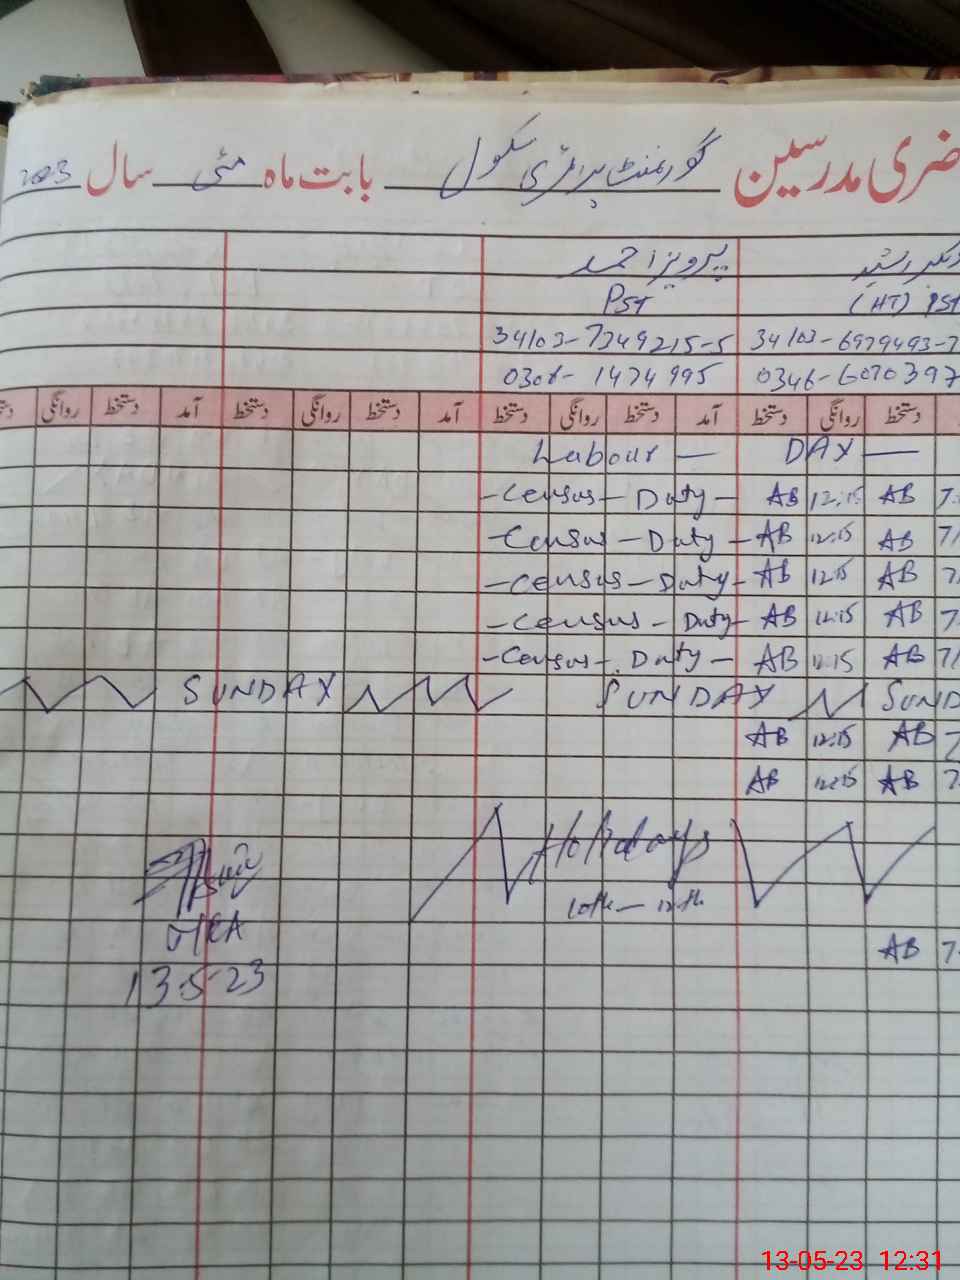 ضری مدرسین گورنمنٹ پرائمری سکول بابت ماہ مئی سال 2023
پرویز احمد
PST (HT) PST
34103-7349215-5 34103-6979493-7
0306-1474995 0346-6070397
دستخط آمد دستخط روانگی دستخط آمد دستخط روانگی دستخط آمد دستخط روانگی دستخط روانگی
Labour — DAY —
AB 12:15 AB - Census - Duty - 7
AB 12:15 AB - Census - Duty - 7/
AB 12:15 AB - Census - Duty - 7
AB 12:15 AB - Census - Duty - 7
AB 12:15 AB - Census - Duty - 7/
SUNDAY SUNDAY SUND
AB 12:15 AB 7
AB 12:15 AB 7
Holidays
10th - 12th
AB 7
13-5-23
13-05-23 12:31